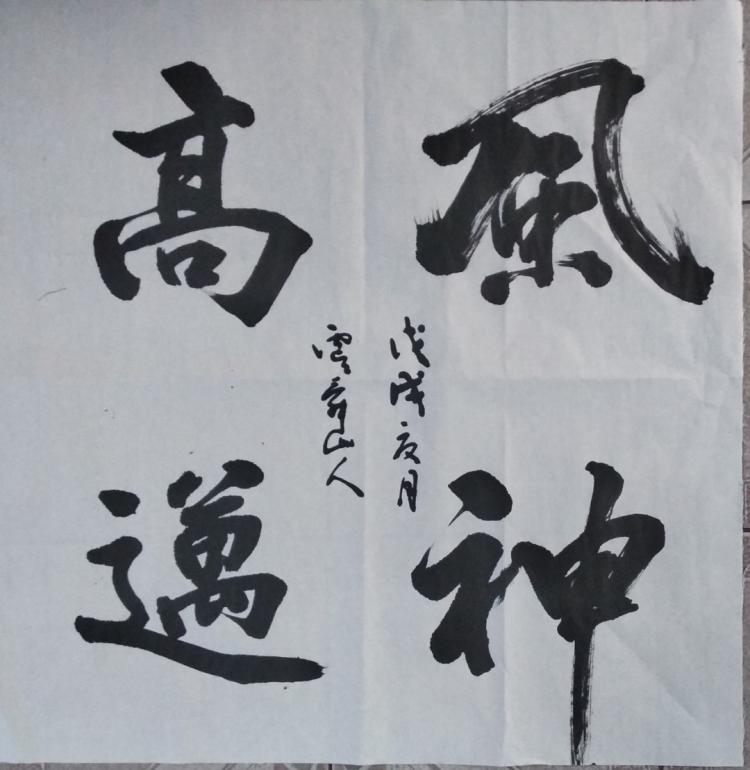 風神
高邁
戊戌夏月
雲山人